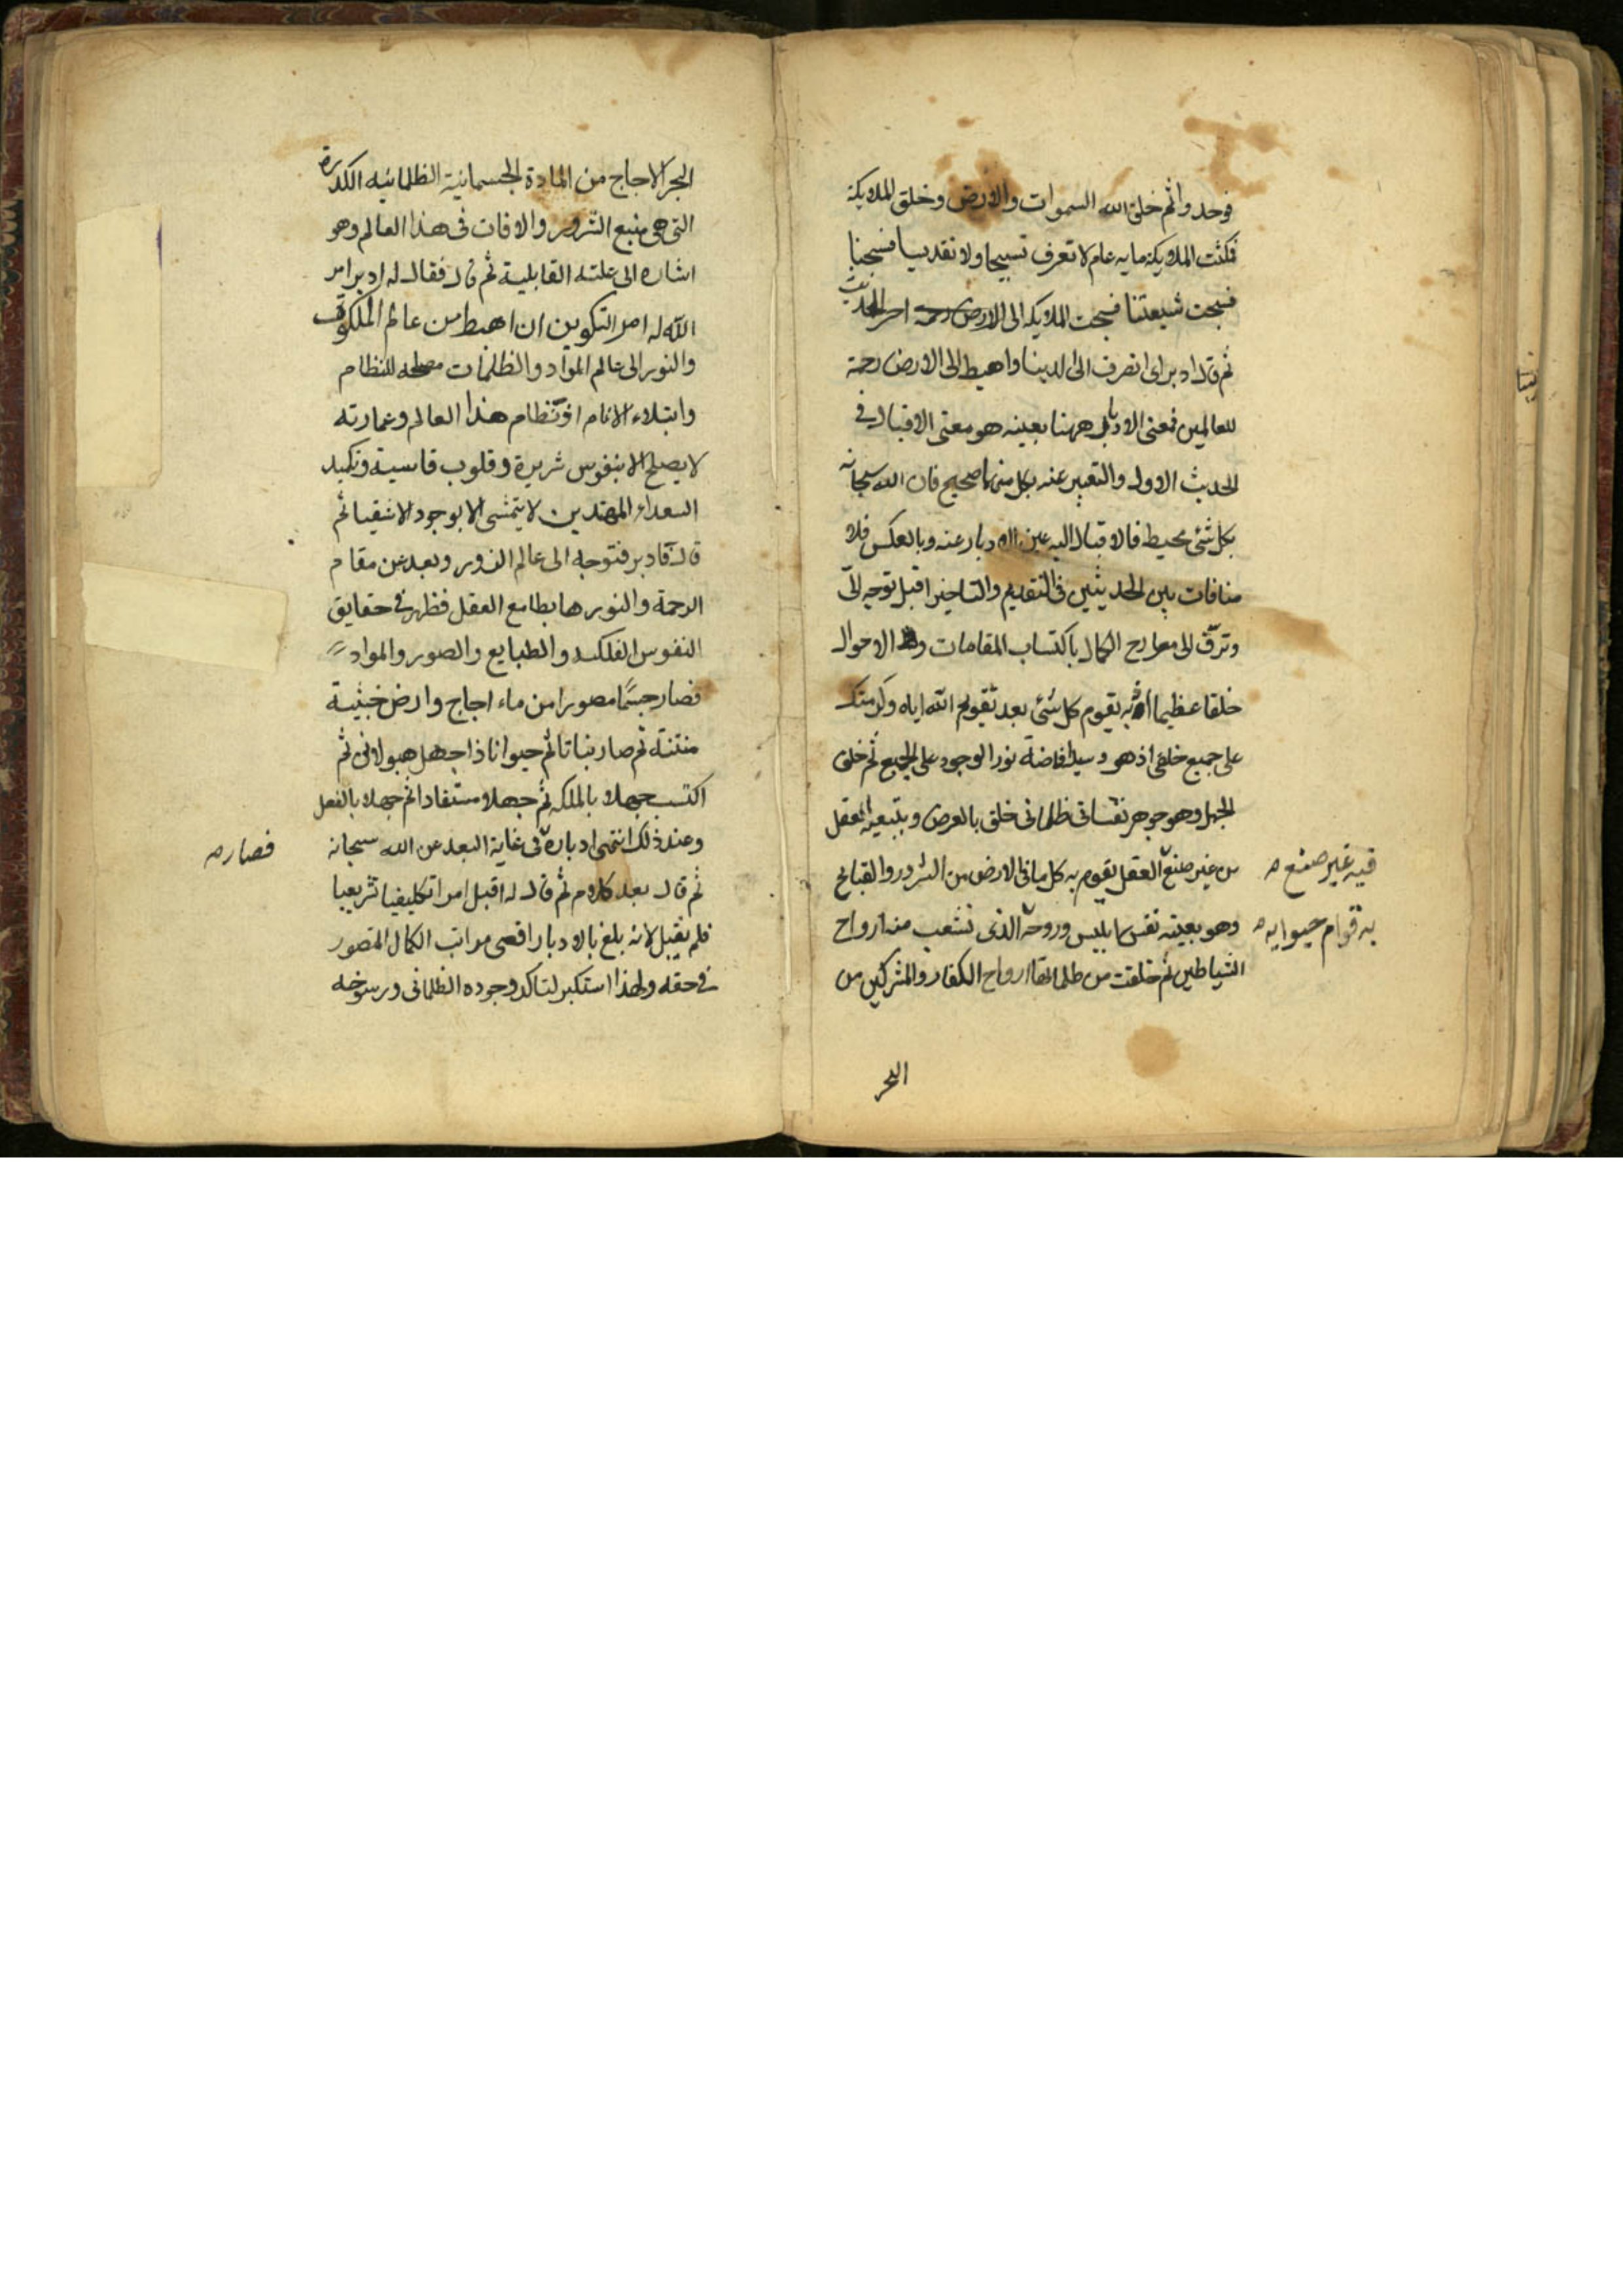 فوحدوا ثم خلق الله السموات والارض وخلق الملايكة
فمكثت الملايكة ماية عام لا تعرف تسبيحا ولا تقديسا فسبحنا
فسبحت شيعتنا فسبحت الملايكة الى الارض رحمة اخر الحديث
ثم قال ادبر اى انصرف الى الدنيا واهبط الى الارض رحمة
للعالمين فمعنى الادبار ههنا بعينه هو معنى الاقبال في
الحديث الاول والتعبير عنه بكل منهما صحيح فان الله سبحانه
بكل شئ محيط فالاقبال اليه عين الادبار عنه وبالعكس فلا
منافات بين الحديثين في التقديم والتاخير اقبل توجه الىّ
وترقّ الى معارج الكمال باكتساب المقامات والاحوال
خلقا عظيما اذ به تقوم كل شئ بعد تقويم الله اياه وكرمتك
على جميع خلقى اذ هو وسيلة افاضة نور الوجود على الجميع ثم خلق
الجهل وهو جوهر نفسانى ظلمانى خلق بالعرض وبتبعية العقل
من غير صنع العقل يقوم به كل ما في الارض من الشرور والقبايح
فيه غير صنع صه
وهو بعينه نفس ابليس وروحه الذى تشعب منه ارواح
به قوام حيوايه صه
الشياطين ثم خلقت من ظلماتها ارواح الكفار والمشركين من
البحر
البحر الاجاج من المادة الجسمانية الظلمانيه الكدرة
التى هى منبع الشرور والافات فى هذا العالم وهو
اشاره الى علته القابلية ثم قال فقال له ادبر امر
الله له امر التكوين ان اهبط من عالم الملكوت
والنور الى عالم المواد والظلمات مصلحه للنظام
وابتلاء للانام اذ نظام هذا العالم وعمارته
لا يصلح الا بنفوس شريرة وقلوب قاسية وتكميل
السعداء المهتدين لا يتمشى الا بوجود الاشقيا ثم
قال فادبر فتوجه الى عالم الزور وبعد عن مقام
الرحمة والنور هابطا مع العقل فظهر فى حقايق
النفوس الفلكيه والطبايع والصور والمواد
فصار جسما مصورا من ماء اجاج وارض خبيثة
منتنة ثم صار نباتا ثم حيوانا ذا جهل هيولانى ثم
اكتسب جهلا بالملكه ثم جهلا مستفادا ثم جهلا بالفعل
وعند ذلك انتهى ادباره فى غاية البعد عن الله سبحانه
فصار صه
ثم قال بعد كلام ثم قال له اقبل امرا تكليفيا تشريعيا
فلم يقبل لانه بلغ بالادبار اقصى مراتب الكمال المتصور
فى حقه ولهذا استكبر لتاكد وجوده الظلمانى ورسوخه